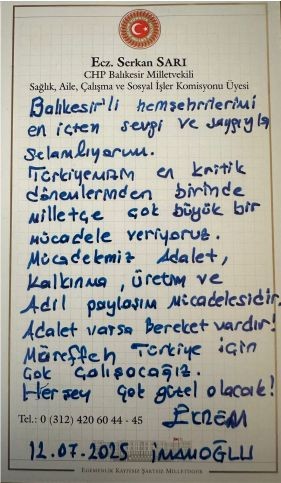 Ecz. Serkan SARI
CHP Balıkesir Milletvekili
Sağlık, Aile, Çalışma ve Sosyal İşler Komisyonu Üyesi
Balıkesir'li hemşehrilerimi
en içten sevgi ve saygıyla
selamlıyorum.
Türkiyemizin en kritik
dönemlerinden birinde
milletçe çok büyük bir
mücadele veriyoruz.
Mücadelemiz Adalet,
kalkınma, üretim ve
Adil paylaşım mücadelesidir.
Adalet varsa bereket vardır!
Müreffeh Türkiye için
çok çalışacağız.
Herşey çok güzel olacak!
Tel.: 0 (312) 420 60 44 - 45
EKREM
12.07.2025 İMAMOĞLU
EGEMENLİK KAYITSIZ ŞARTSIZ MİLLETİNDİR